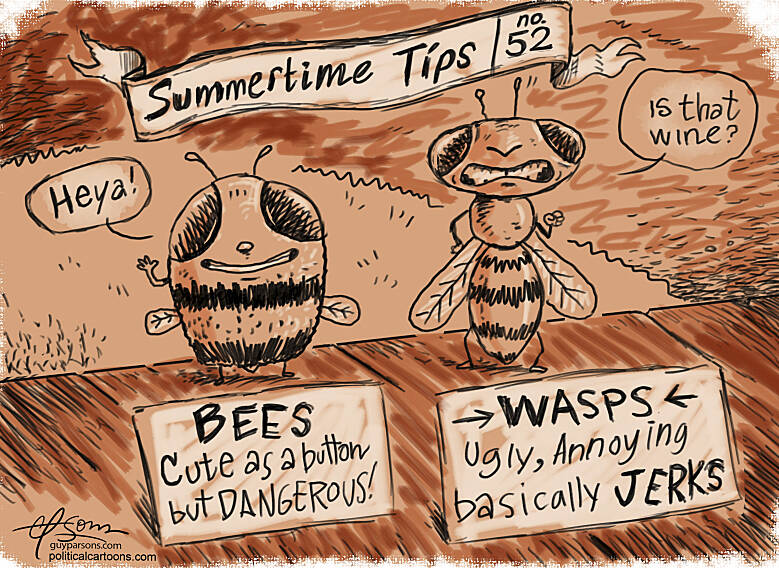 Summertime Tips
no.
52
Heya!
is that
wine?
BEES
Cute as a button
but DANGEROUS!
→ WASPS ←
Ugly, Annoying
basically JERKS
guyparsons.com
politicalcartoons.com